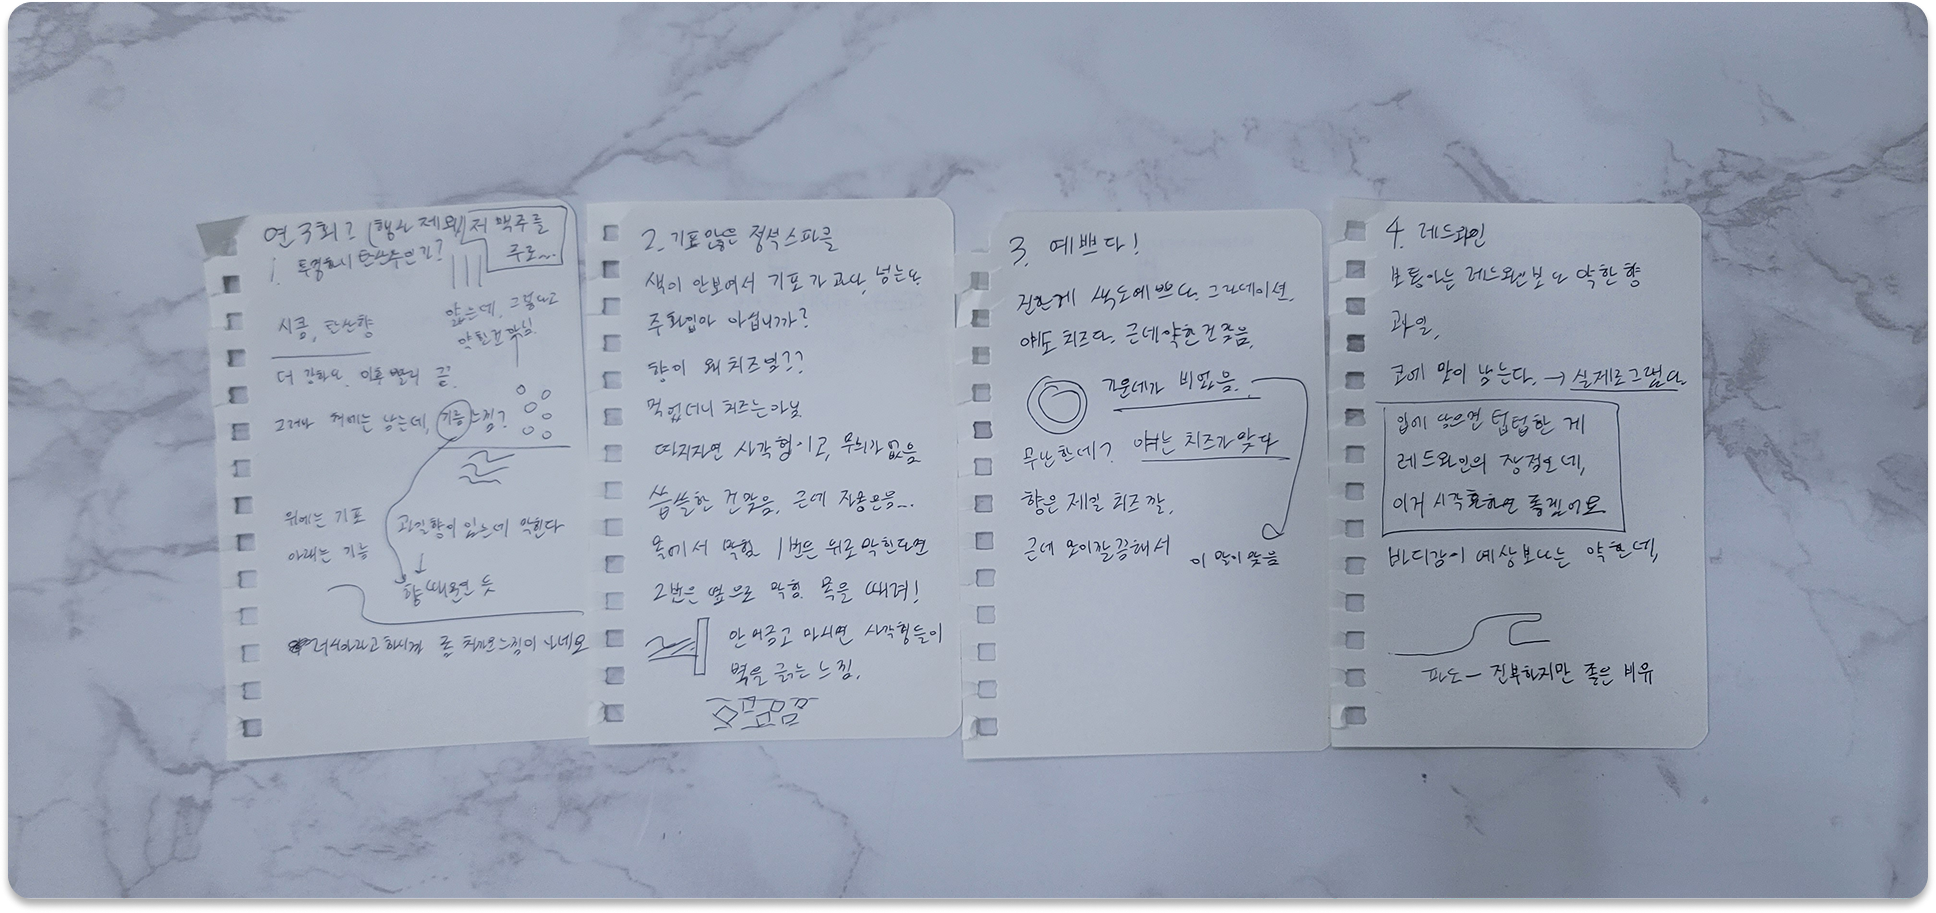 연 3회? (행사 제외) 저 맥주를
주로...
1. 투명하시 탄산주인가?
시큼, 탄산향
얇은데, 그렇다고
약한건 맞님.
더 강하요. 이후 빨리 끝.
그러나 혀에는 남는데, 기름 느낌?
위에는 기포
아래는 기름
과일향이 있는데 막힌다
향 때문인 듯
좀 차가운 느낌이 나네요
2. 기포 않은 정석 스파클
색이 안보여서 기포가 크다. 넣는다
주최입아 아섭니까?
향이 왜 치즈임??
먹었더니 치즈는 아님.
따지자면 사각형이고, 무늬가 없음
씁쓸한 건 맞음, 근데 적응은음...
목에서 막힘 1번은 위로 막힌다면
2번은 옆으로 막힘. 목을 때려!
안 머금고 마시면 사각형들이
벽을 긁는 느낌.
3. 예쁘다!
진한게 색도 예쁘다. 그라데이션.
얘도 치즈다. 근데 약한건 맞음.
가운데가 비었음.
무난한데? 얘는 치즈가 맞다
향은 제일 치즈 깔.
근데 모이잘곰해서
이 말이 맞음
4. 레드와인
보통아는 레드와인보다 약한 향
과일.
코에 많이 남는다. → 실제로 그렇다.
입에 담으면 텁텁한 게
레드와인의 장점인데,
이거 시각화하면 좋겠어요
바디감이 예상보다는 약한데,
파도 - 진부하지만 좋은 비유